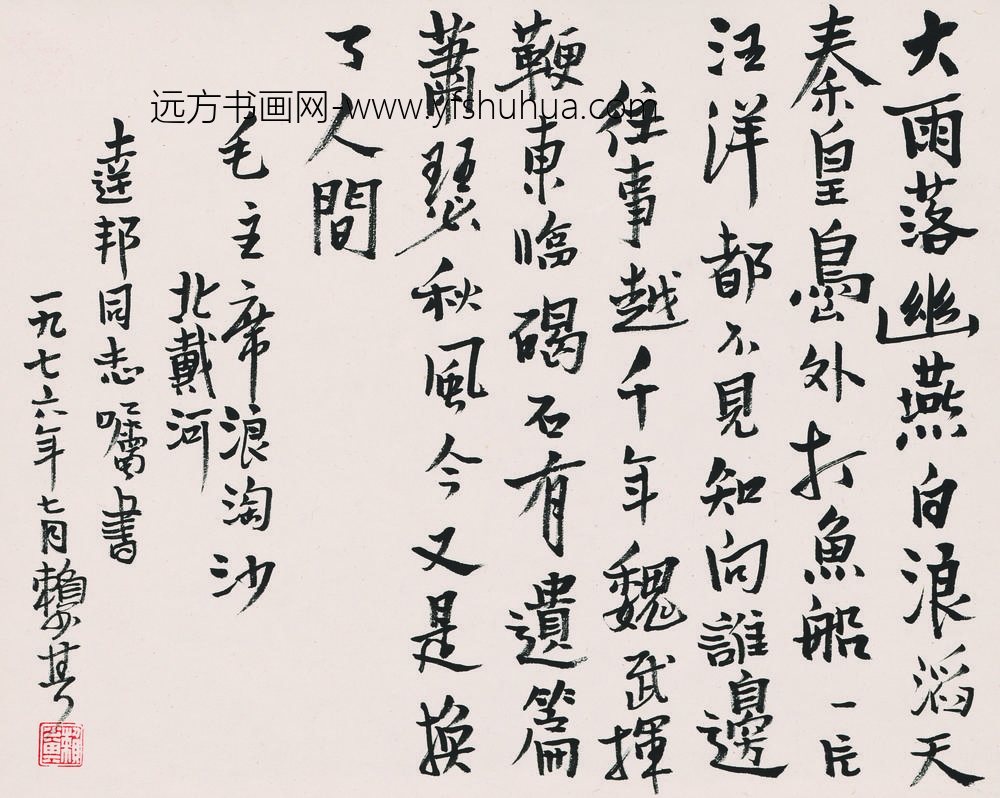 大雨落幽燕白浪滔天
秦皇島外打魚船一片
汪洋都不見知向誰邊
往事越千年魏武揮
鞭東臨碣石有遺篇
蕭瑟秋風今又是換
了人間
毛主席浪淘沙
北戴河
達邦同志囑書
一九七六年七月賴少其
远方书画网-www.yfshuhua.com